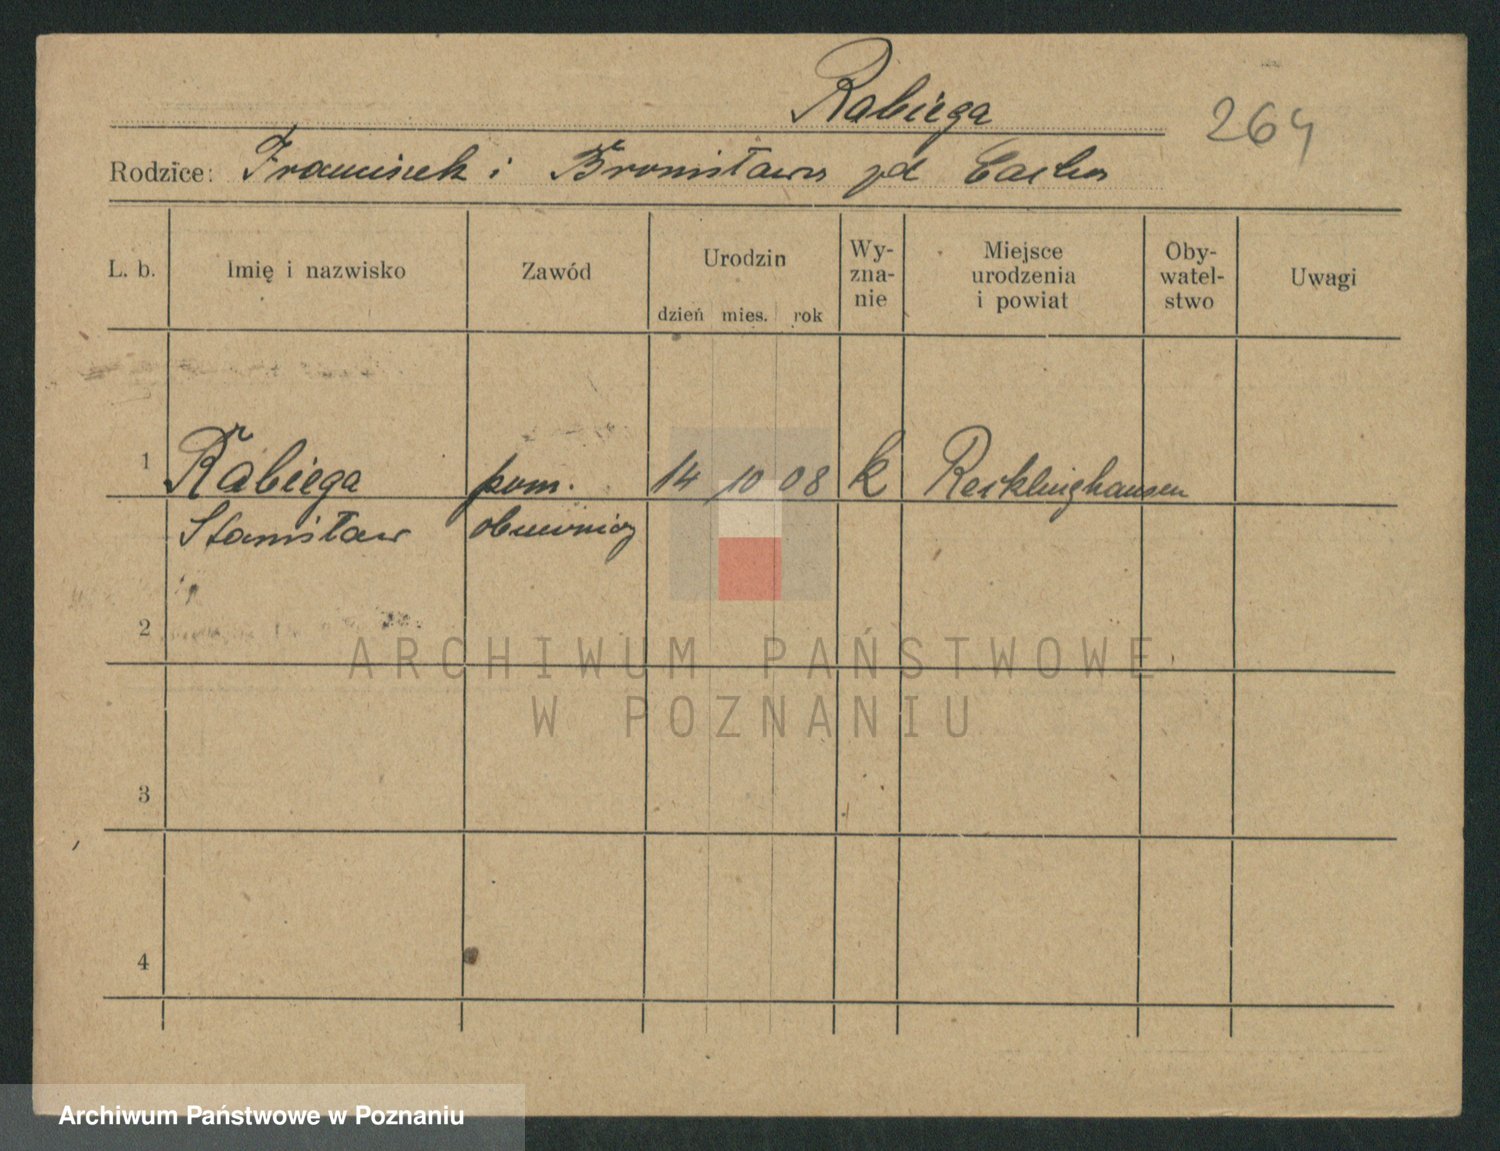 Rabiega
264
Rodzice: Franciszek i Bronisława zd
L. b. Imię i nazwisko Zawód Urodzin dzień mies. rok Wy-zna-nie Miejsce urodzenia i powiat Oby-watel-stwo Uwagi
1 Rabiega pom. 14 10 08 k Recklinghausen
Stanisław obuwniczy
2
ARCHIWUM PAŃSTWOWE
W POZNANIU
3
4
Archiwum Państwowe w Poznaniu